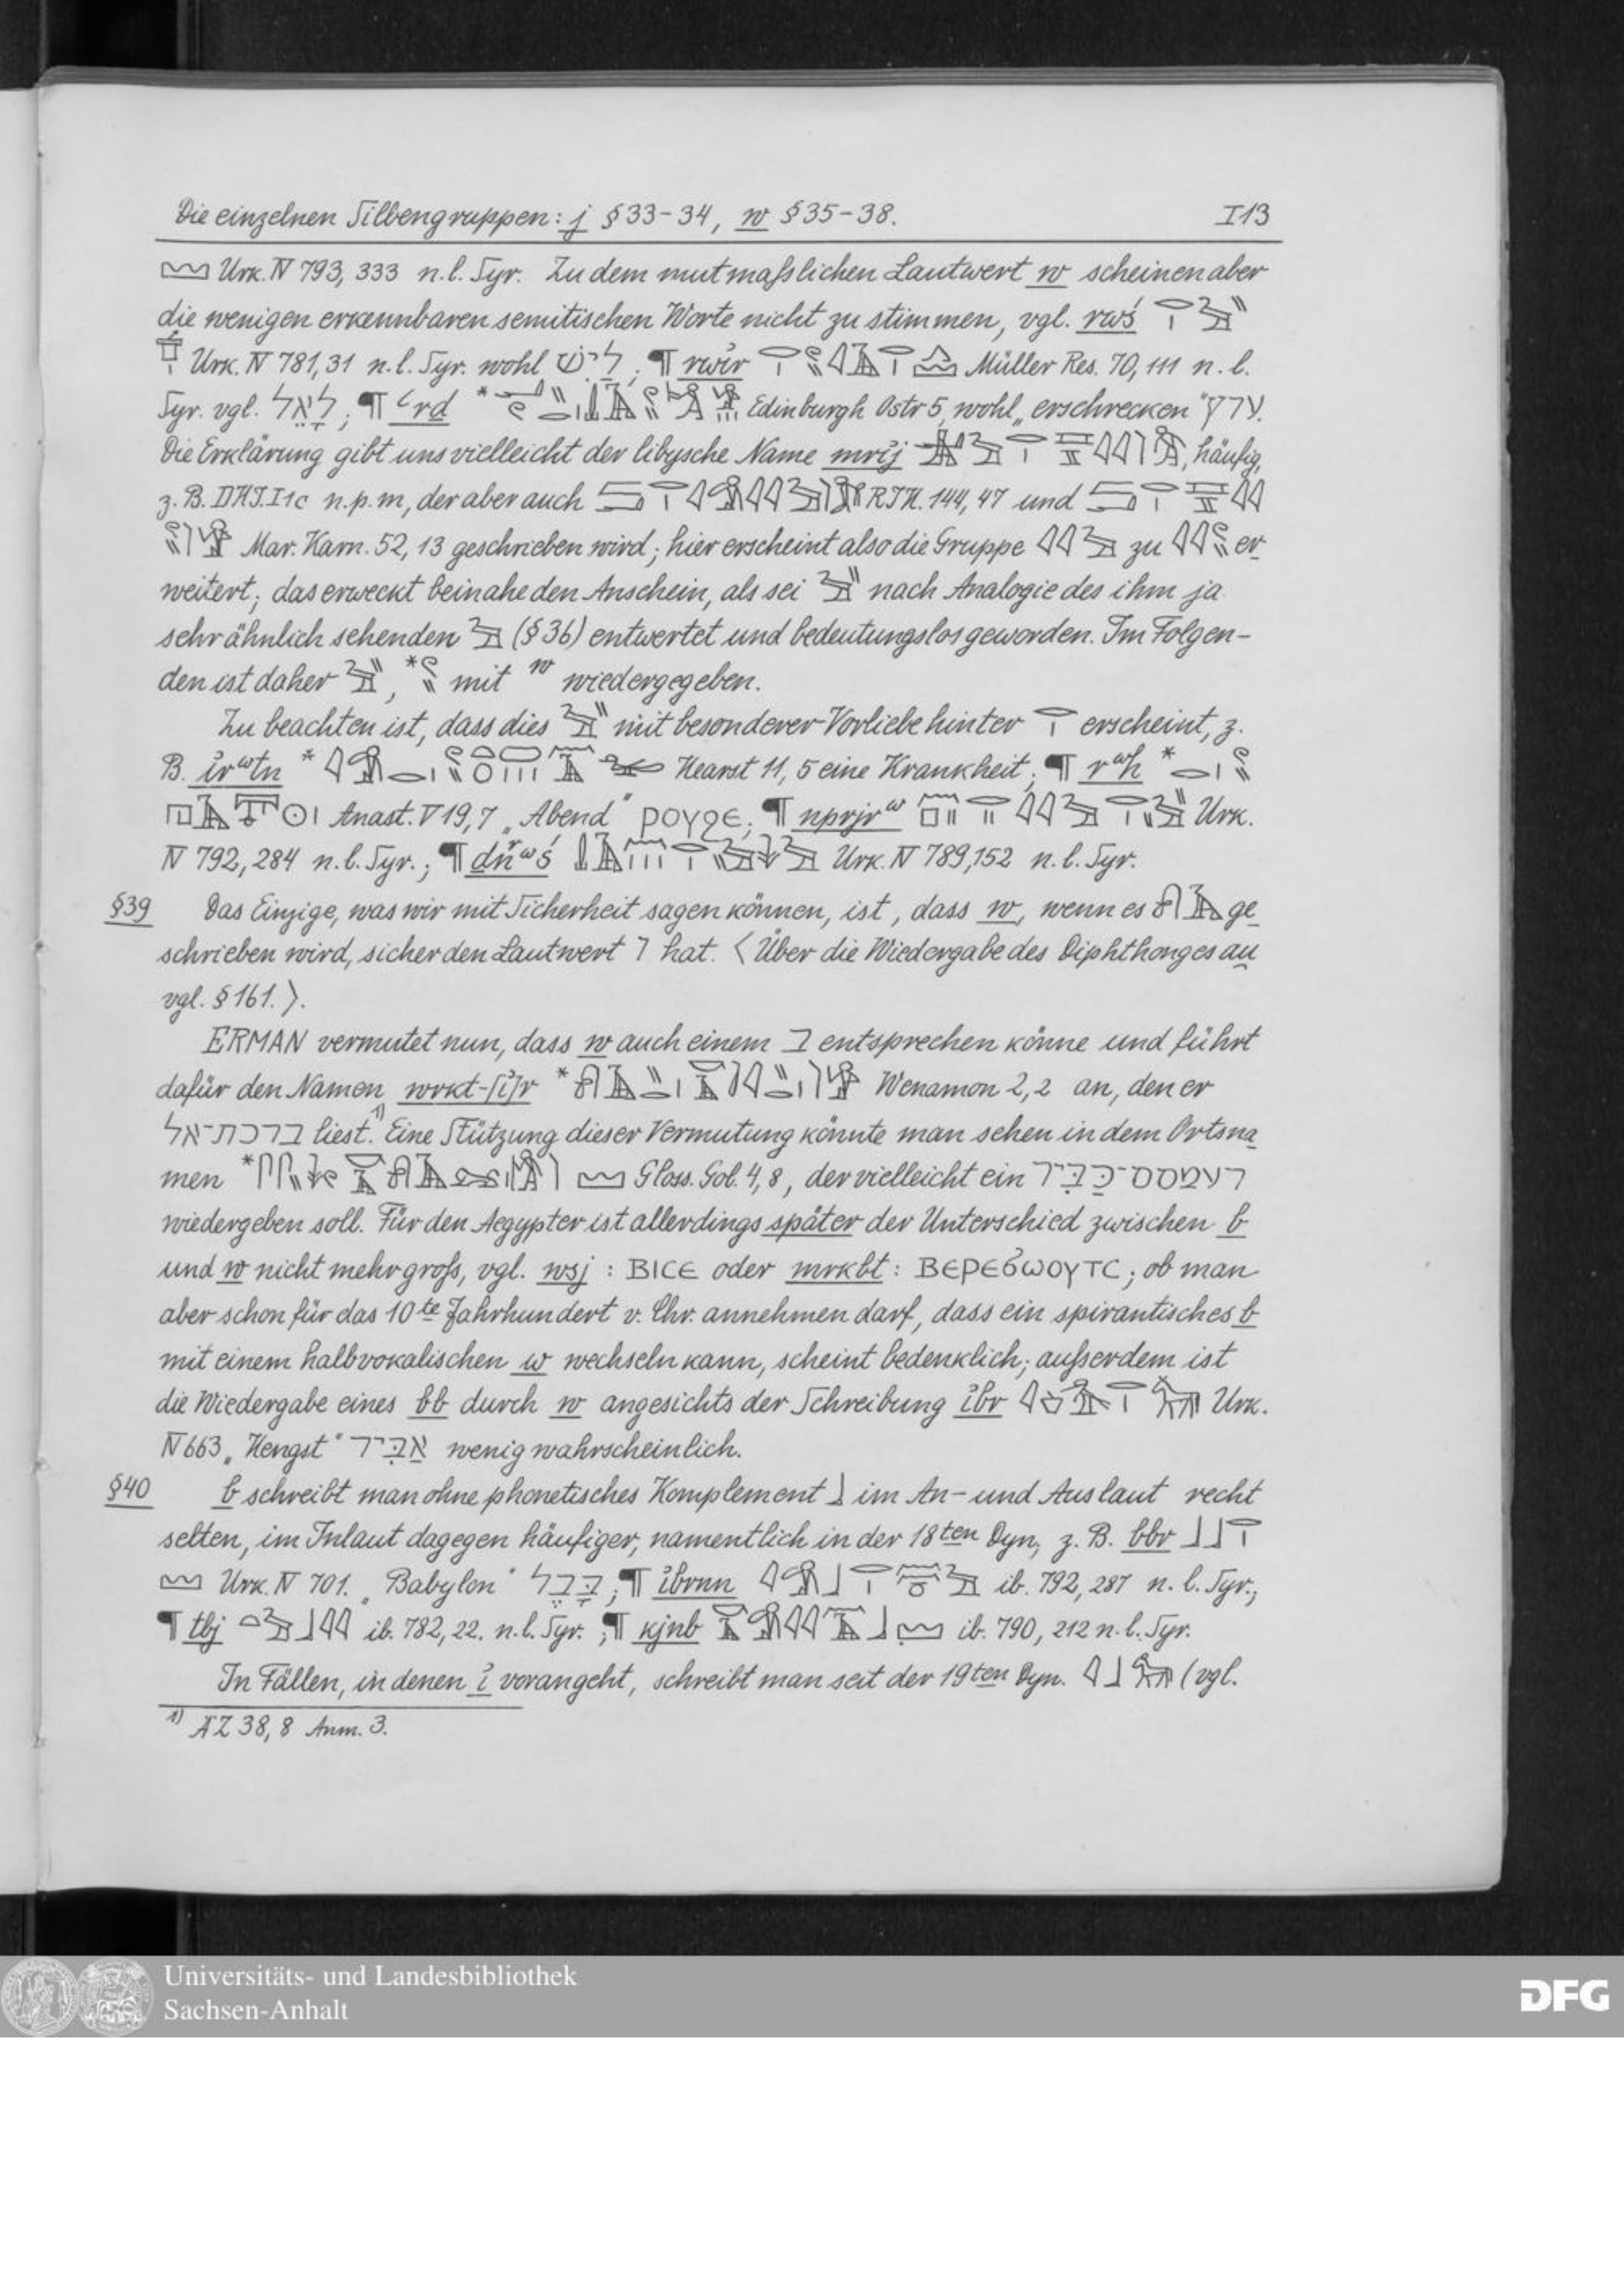 Die einzelnen Silbengruppen: j §33-34, w §35-38. I13
Urk. IV 793, 333 n.l. Syr. Zu dem mutmaßlichen Lautwert w scheinen aber
die wenigen erkennbaren semitischen Worte nicht zu stimmen, vgl. rwś
Urk. IV 781,31 n.l. Syr. wohl ליש; ¶ rwir Müller Res. 70, 111 n.l.
Syr. vgl. ¶ ꜥrd * Edinburgh Ostr 5, wohl „erschrecken" ערץ.
Die Erklärung gibt uns vielleicht der libysche Name mrij, häufig,
z. B. I1c n.p.m, der aber auch 144, 47 und
Mar. Karn. 52, 13 geschrieben wird; hier erscheint also die Gruppe zu er-
weitert; das erweckt beinahe den Anschein, als sei nach Analogie des ihm ja
sehr ähnlich sehenden (§36) entwertet und bedeutungslos geworden. Im Folgen-
den ist daher , * mit w wiedergegeben.
Zu beachten ist, dass dies mit besonderer Vorliebe hinter erscheint, z.
B. irwtn * Hearst 11, 5 eine Krankheit; ¶ rwh *
Anast. V 19,7 „Abend" ρογϩε; ¶ nprjrw Urk.
IV 792, 284 n.l. Syr.; ¶ Urk. IV 789,152 n.l. Syr.
§39 Das Einzige, was wir mit Sicherheit sagen können, ist, dass w, wenn es ge-
schrieben wird, sicher den Lautwert ו hat. <Über die Wiedergabe des Diphthonges au
vgl. §161.>.
ERMAN vermutet nun, dass w auch einem ב entsprechen könne und führt
dafür den Namen wrkt-[i]r * Wenamon 2,2 an, den er
ברכת־אל liest.1) Eine Stützung dieser Vermutung könnte man sehen in dem Ortsna-
men * Gloss. Gol. 4,8, der vielleicht ein רעמסס־כַּבִּיר
wiedergeben soll. Für den Aegypter ist allerdings später der Unterschied zwischen b
und w nicht mehr groß, vgl. wsj : ΒΙCΕ oder mrkbt : ΒΕΡΕϬωΟΥΤC; ob man
aber schon für das 10te Jahrhundert v. Chr. annehmen darf, dass ein spirantisches b
mit einem halbvokalischen w wechseln kann, scheint bedenklich; außerdem ist
die Wiedergabe eines bb durch w angesichts der Schreibung ibr Urk.
IV 663 „Hengst" אַבִּיר wenig wahrscheinlich.
§40 b schreibt man ohne phonetisches Komplement im An- und Auslaut recht
selten, im Inlaut dagegen häufiger, namentlich in der 18ten Dyn, z. B. bbr
Urk. IV 701. „Babylon" בָּבֶל; ¶ ibrnn ib. 792, 287 n.l. Syr.;
¶ tbj ib. 782, 22. n.l. Syr.; ¶ kjnb ib. 790, 212 n.l. Syr.
In Fällen, in denen i vorangeht, schreibt man seit der 19ten Dyn. (vgl.
1) ÄZ 38, 8 Anm. 3.
Universitäts- und Landesbibliothek
Sachsen-Anhalt
DFG